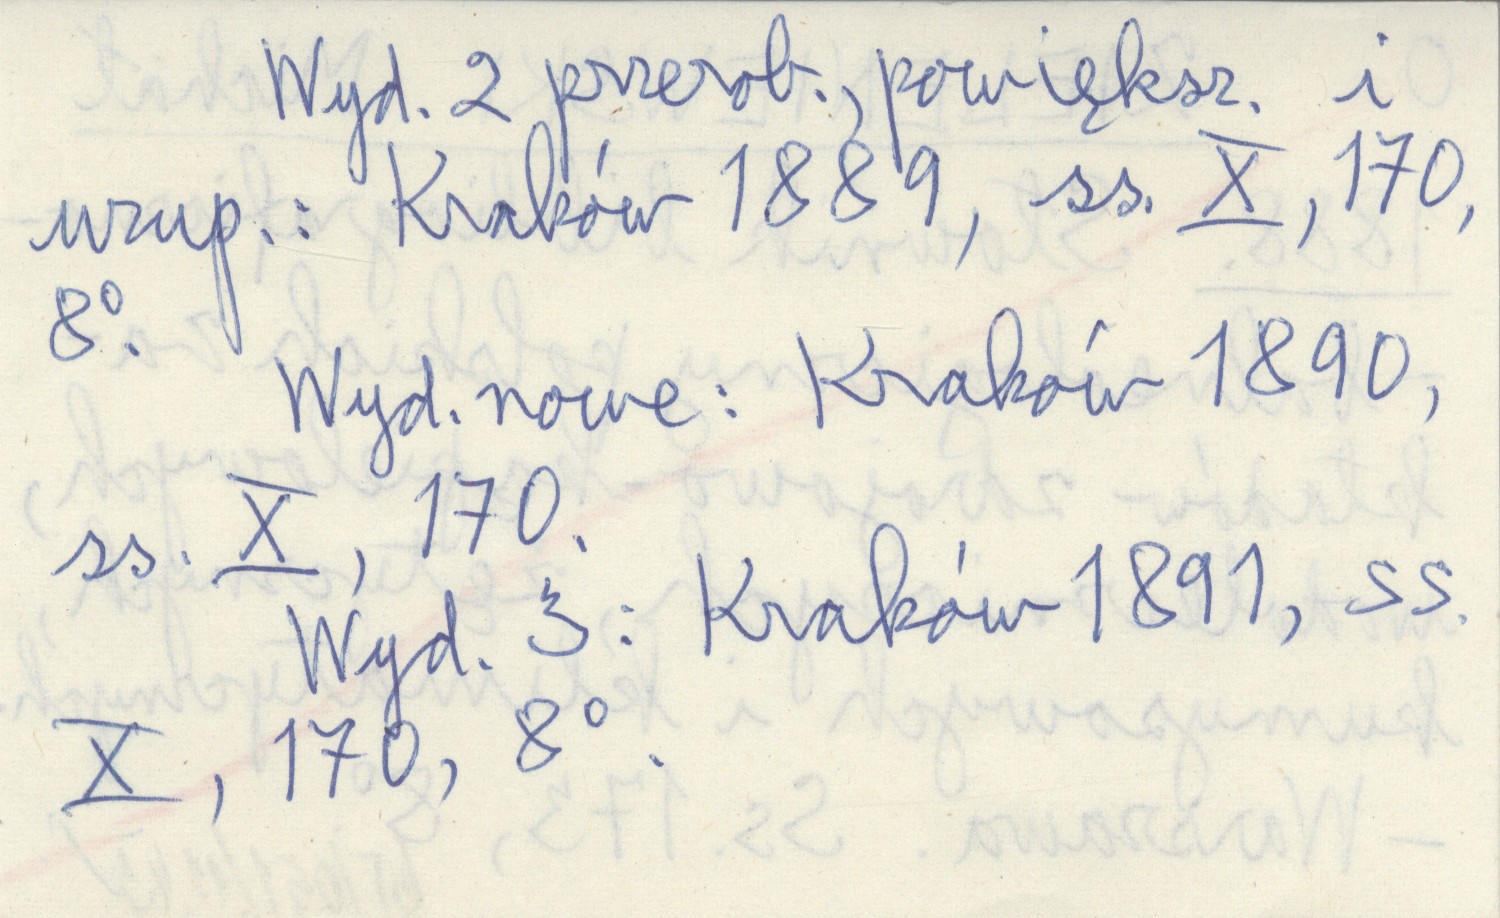 Wyd. 2 przerob., powiększ. i
uzup.: Kraków 1889, ss. X, 170,
8°.
Wyd. nowe: Kraków 1890,
ss. X, 170.
Wyd. 3: Kraków 1891, ss.
X, 170, 8°.